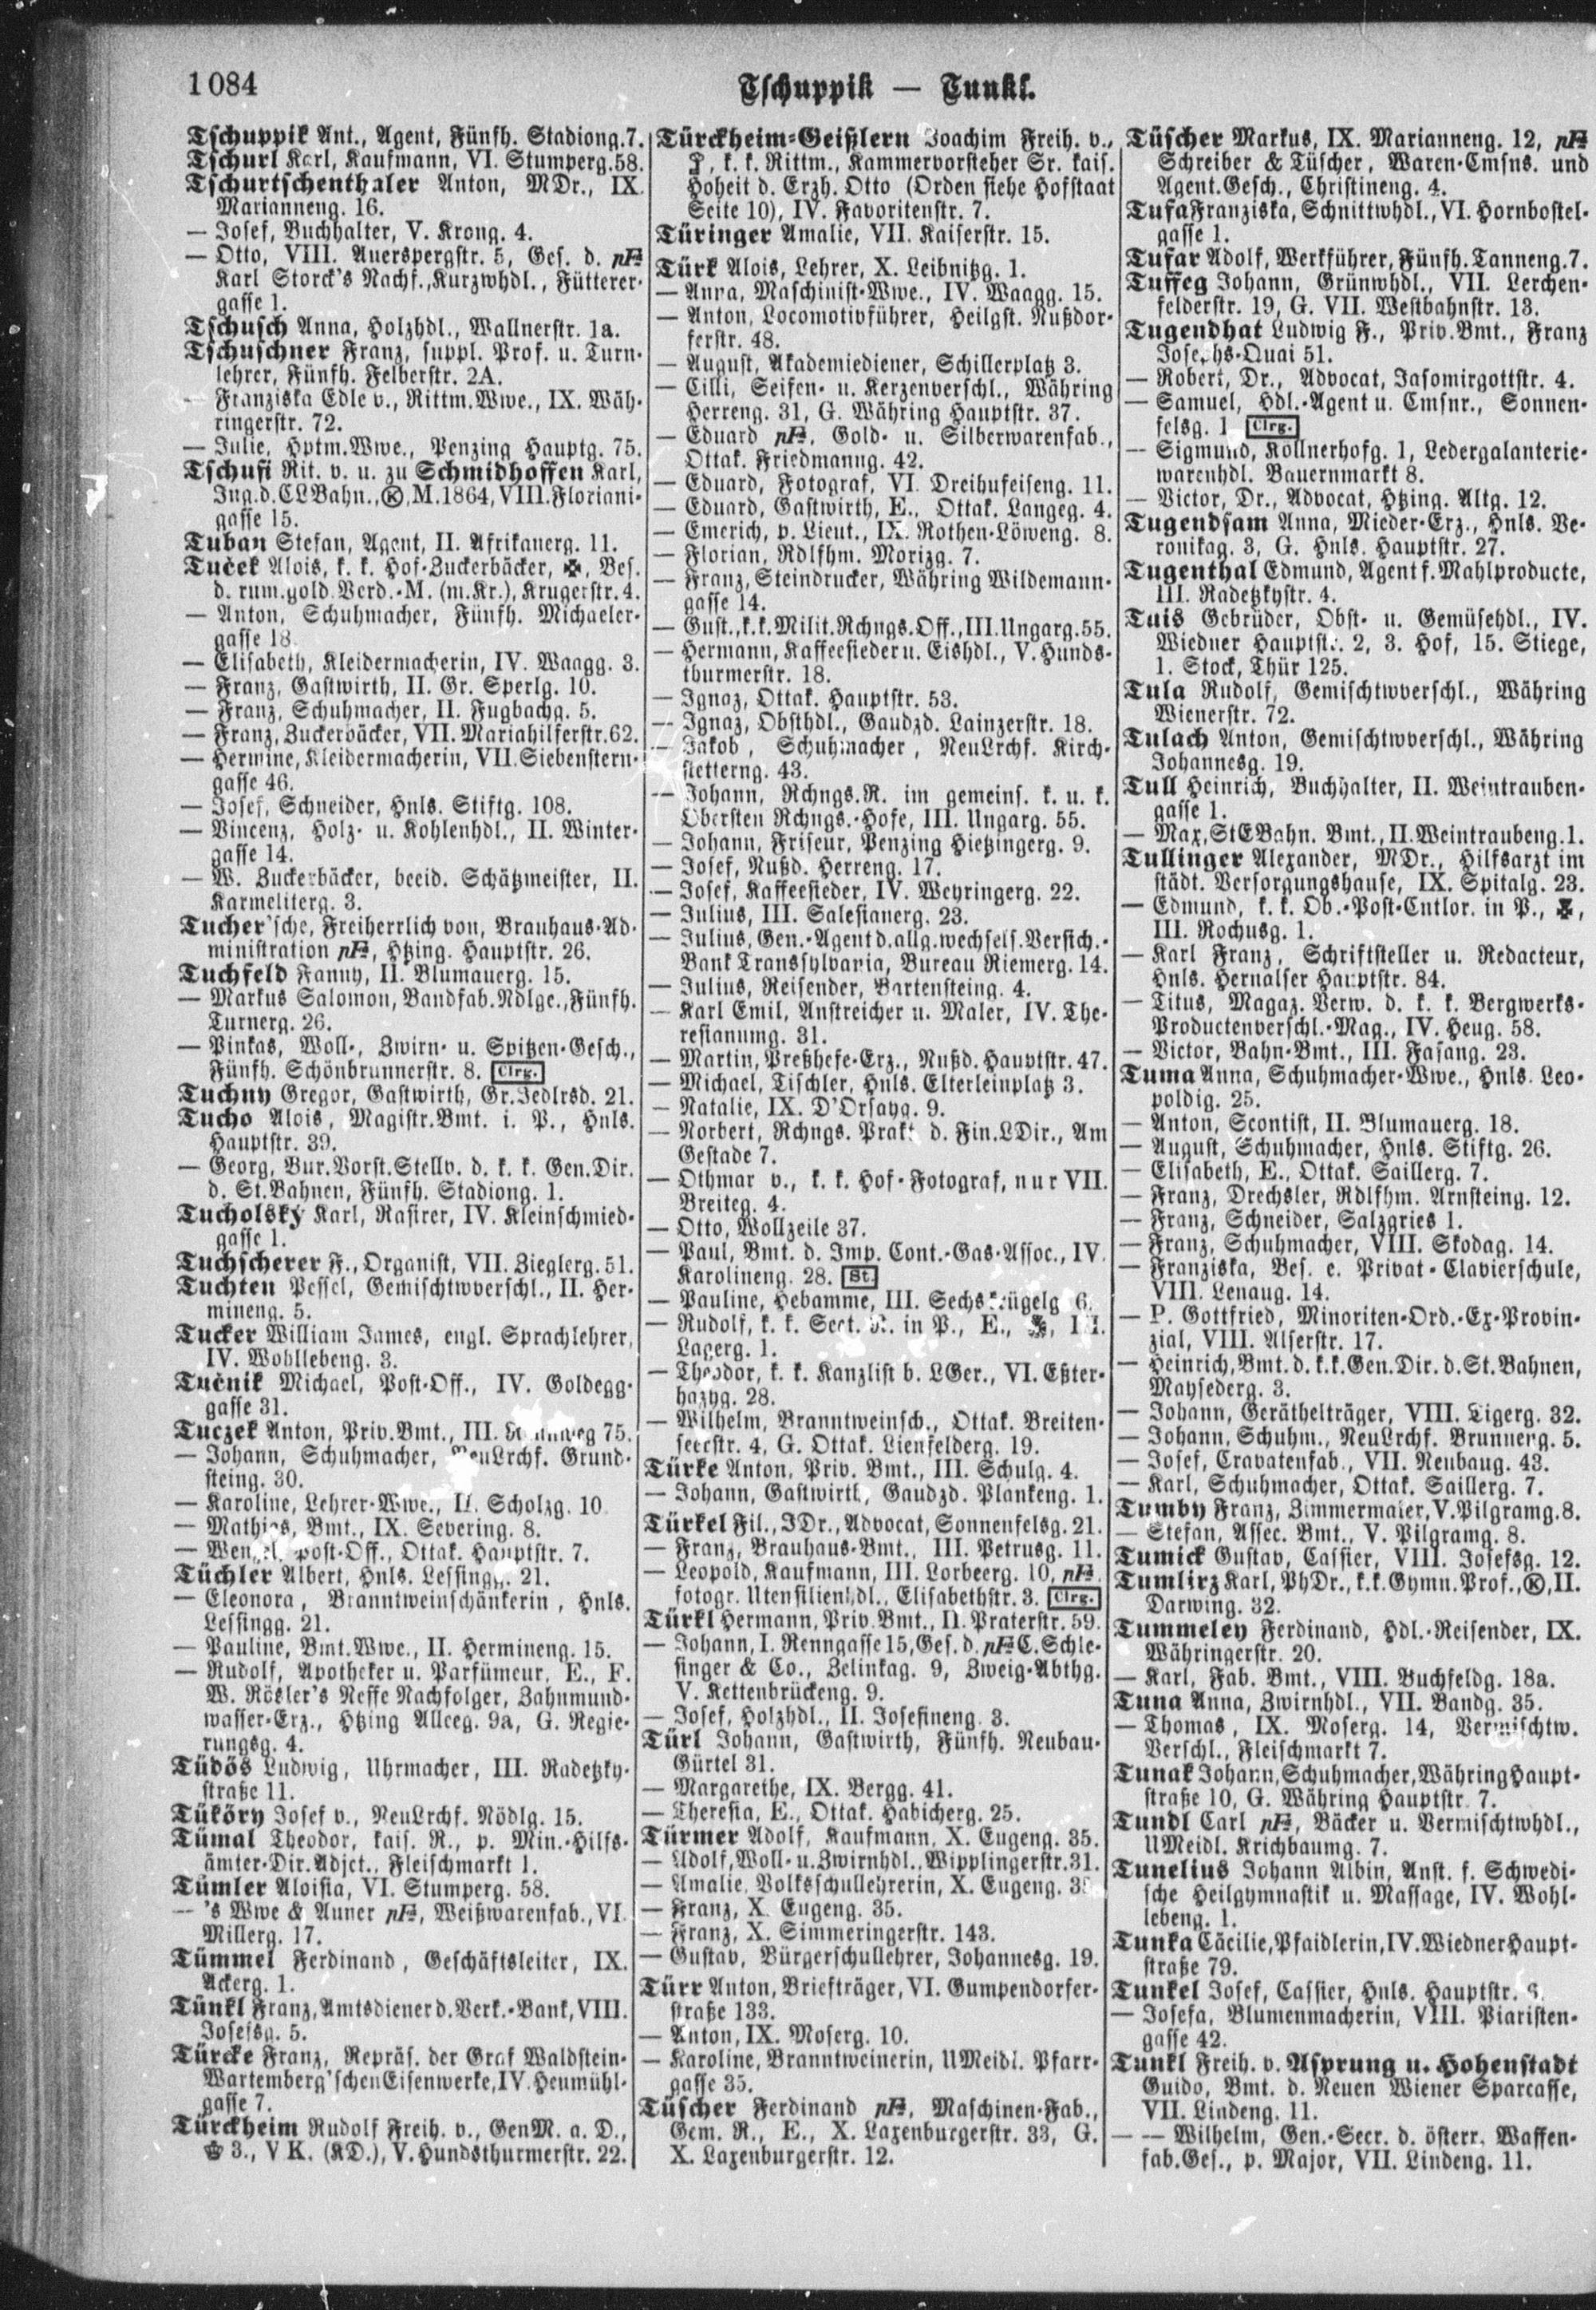 1084
Tschuppik — Tunkl.
Tschuppik Ant., Agent, Fünfh. Stadiong. 7.
Tschurl Karl, Kaufmann, VI. Stumperg. 58.
Tschurtschenthaler Anton, MDr., IX.
Marianneng. 16.
— Josef, Buchhalter, V. Krong. 4.
— Otto, VIII. Auerspergstr. 5, Ges. d.
Karl Storck's Nachf., Kurzwhdl., Fütterer-
gasse 1.
Tschusch Anna, Holzhdl., Wallnerstr. 1a.
Tschuschner Franz, suppl. Prof. u. Turn-
lehrer, Fünfh. Felberstr. 2A.
— Franziska Edle v., Rittm.Wwe., IX. Wäh-
ringerstr. 72.
— Julie, Hptm.Wwe., Penzing Hauptg. 75.
Tschusi Rit. v. u. zu Schmidhoffen Karl,
Ing. d. CLBahn., Ⓚ, M. 1864, VIII. Floriani-
gasse 15.
Tuban Stefan, Agent, II. Afrikanerg. 11.
Tuček Alois, k. k. Hof-Zuckerbäcker, ✠, Bes.
d. rum. gold. Verd.-M. (m. Kr.), Krugerstr. 4.
— Anton, Schuhmacher, Fünfh. Michaeler-
gasse 18.
— Elisabeth, Kleidermacherin, IV. Waagg. 3.
— Franz, Gastwirth, II. Gr. Sperlg. 10.
— Franz, Schuhmacher, II. Fugbachg. 5.
— Franz, Zuckerbäcker, VII. Mariahilferstr. 62.
— Hermine, Kleidermacherin, VII. Siebenstern-
gasse 46.
— Josef, Schneider, Hnls. Stiftg. 108.
— Vincenz, Holz- u. Kohlenhdl., II. Winter-
gasse 14.
— W. Zuckerbäcker, beeid. Schätzmeister, II.
Karmeliterg. 3.
Tucher'sche, Freiherrlich von, Brauhaus-Ad-
ministration, Htzing. Hauptstr. 26.
Tuchfeld Fanny, II. Blumauerg. 15.
— Markus Salomon, Bandfab. Ndlge., Fünfh.
Turnerg. 26.
— Pinkas, Woll-, Zwirn- u. Spitzen-Gesch.,
Fünfh. Schönbrunnerstr. 8. Clrg.
Tuchny Gregor, Gastwirth, Gr.Jedlrsd. 21.
Tucho Alois, Magistr.Bmt. i. P., Hnls.
Hauptstr. 39.
— Georg, Bur.Vorst.Stellv. d. k. k. Gen.Dir.
d. St.Bahnen, Fünfh. Stadiong. 1.
Tucholsky Karl, Rasirer, IV. Kleinschmied-
gasse 1.
Tuchscherer F., Organist, VII. Zieglerg. 51.
Tuchten Pessel, Gemischtwverschl., II. Her-
mineng. 5.
Tucker William James, engl. Sprachlehrer,
IV. Wohllebeng. 3.
Tučnik Michael, Post-Off., IV. Goldegg-
gasse 31.
Tuczek Anton, Priv.Bmt., III. 75.
— Johann, Schuhmacher, NeuLrchf. Grund-
steing. 30.
— Karoline, Lehrer-Wwe., II. Scholzg. 10.
— Mathias, Bmt., IX. Severing. 8.
— Wenzel, Post-Off., Ottak. Hauptstr. 7.
Tüchler Albert, Hnls. Lessingg. 21.
— Eleonora, Branntweinschänkerin, Hnls.
Lessingg. 21.
— Pauline, Bmt.Wwe., II. Hermineng. 15.
— Rudolf, Apotheker u. Parfümeur, E., F.
W. Rösler's Neffe Nachfolger, Zahnmund-
wasser-Erz., Htzing Alleeg. 9a, G. Regie-
rungsg. 4.
Tüdös Ludwig, Uhrmacher, III. Radetzky-
straße 11.
Tüköry Josef v., NeuLrchf. Nödlg. 15.
Tümal Theodor, kais. R., p. Min.-Hilfs-
ämter-Dir.Adjct., Fleischmarkt 1.
Tümler Aloisia, VI. Stumperg. 58.
— 's Wwe & Auner, Weißwarenfab., VI.
Millerg. 17.
Tümmel Ferdinand, Geschäftsleiter, IX.
Ackerg. 1.
Tünkl Franz, Amtsdiener d. Verk.-Bank, VIII.
Josefsg. 5.
Türcke Franz, Repräs. der Graf Waldstein-
Wartemberg'schen Eisenwerke, IV. Heumühl-
gasse 7.
Türckheim Rudolf Freih. v., GenM. a. D.,
3., V K. (KD.), V. Hundsthurmerstr. 22.
Türckheim-Geißlern Joachim Freih. v.,
k. k. Rittm., Kammervorsteher Sr. kais.
Hoheit d. Erzh. Otto (Orden siehe Hofstaat
Seite 10), IV. Favoritenstr. 7.
Türinger Amalie, VII. Kaiserstr. 15.
Türk Alois, Lehrer, X. Leibnitzg. 1.
— Anna, Maschinist-Wwe., IV. Waagg. 15.
— Anton, Locomotivführer, Heilgst. Nußdor-
ferstr. 48.
— August, Akademiediener, Schillerplatz 3.
— Cilli, Seifen- u. Kerzenverschl., Währing
Herreng. 31, G. Währing Hauptstr. 37.
— Eduard, Gold- u. Silberwarenfab.,
Ottak. Friedmanng. 42.
— Eduard, Fotograf, VI. Dreihufeiseng. 11.
— Eduard, Gastwirth, E., Ottak. Langeg. 4.
— Emerich, p. Lieut., IX. Rothen-Löweng. 8.
— Florian, Rdlfhm. Morizg. 7.
— Franz, Steindrucker, Währing Wildemann-
gasse 14.
— Gust., k. k. Milit.Rchngs.Off., III. Ungarg. 55.
— Hermann, Kaffeesieder u. Eishdl., V. Hunds-
thurmerstr. 18.
— Ignaz, Ottak. Hauptstr. 53.
— Ignaz, Obsthdl., Gaudzd. Lainzerstr. 18.
— Jakob, Schuhmacher, NeuLrchf. Kirch-
stetterng. 43.
— Johann, Rchngs.R. im gemeins. k. u. k.
Obersten Rchngs.-Hofe, III. Ungarg. 55.
— Johann, Friseur, Penzing Hietzingerg. 9.
— Josef, Nußd. Herreng. 17.
— Josef, Kaffeesieder, IV. Weyringerg. 22.
— Julius, III. Salesianerg. 23.
— Julius, Gen.-Agent d. allg. wechsels. Versich.-
Bank Transsylvania, Bureau Riemerg. 14.
— Julius, Reisender, Bartensteing. 4.
— Karl Emil, Anstreicher u. Maler, IV. The-
resianumg. 31.
— Martin, Preßhefe-Erz., Nußd. Hauptstr. 47.
— Michael, Tischler, Hnls. Elterleinplatz 3.
— Natalie, IX. D'Orsayg. 9.
— Norbert, Rchngs. Prakt. d. Fin.LDir., Am
Gestade 7.
— Othmar v., k. k. Hof-Fotograf, nur VII.
Breiteg. 4.
— Otto, Wollzeile 37.
— Paul, Bmt. d. Imp. Cont.-Gas-Assoc., IV.
Karolineng. 28. St.
— Pauline, Hebamme, III. Sechskrügelg. 6.
— Rudolf, k. k. Sect. R. in P., E., III.
Lagerg. 1.
— Theodor, k. k. Kanzlist b. LGer., VI. Eßter-
hazyg. 28.
— Wilhelm, Branntweinsch., Ottak. Breiten-
seerstr. 4, G. Ottak. Lienfelderg. 19.
Türke Anton, Priv. Bmt., III. Schulg. 4.
— Johann, Gastwirth, Gaudzd. Plankeng. 1.
Türkel Fil., JDr., Advocat, Sonnenfelsg. 21.
— Franz, Brauhaus-Bmt., III. Petrusg. 11.
— Leopold, Kaufmann, III. Lorbeerg. 10,
fotogr. Utensilienhdl., Elisabethstr. 3. Clrg.
Türkl Hermann, Priv.Bmt., II. Praterstr. 59.
— Johann, I. Renngasse 15, Ges. d. C. Schle-
singer & Co., Zelinkag. 9, Zweig-Abthg.
V. Kettenbrückeng. 9.
— Josef, Holzhdl., II. Josefineng. 3.
Türl Johann, Gastwirth, Fünfh. Neubau-
Gürtel 31.
— Margarethe, IX. Bergg. 41.
— Theresia, E., Ottak. Habicherg. 25.
Türmer Adolf, Kaufmann, X. Eugeng. 35.
— Adolf, Woll- u. Zwirnhdl., Wipplingerstr. 31.
— Amalie, Volksschullehrerin, X. Eugeng.
— Franz, X. Eugeng. 35.
— Franz, X. Simmeringerstr. 143.
— Gustav, Bürgerschullehrer, Johannesg. 19.
Türr Anton, Briefträger, VI. Gumpendorfer-
straße 133.
— Anton, IX. Moserg. 10.
— Karoline, Branntweinerin, UMeidl. Pfarr-
gasse 35.
Tüscher Ferdinand, Maschinen-Fab.,
Gem. R., E., X. Laxenburgerstr. 33, G.
X. Laxenburgerstr. 12.
Tüscher Markus, IX. Marianneng. 12,
Schreiber & Tüscher, Waren-Cmsns. und
Agent.Gesch., Christineng. 4.
Tufa Franziska, Schnittwhdl., VI. Hornbostel-
gasse 1.
Tufar Adolf, Werkführer, Fünfh. Tanneng. 7.
Tuffeg Johann, Grünwhdl., VII. Lerchen-
felderstr. 19, G. VII. Westbahnstr. 13.
Tugendhat Ludwig F., Priv.Bmt., Franz
Josephs-Quai 51.
— Robert, Dr., Advocat, Jasomirgottstr. 4.
— Samuel, Hdl.-Agent u. Cmsnr., Sonnen-
felsg. 1. Clrg.
— Sigmund, Köllnerhofg. 1, Ledergalanterie-
warenhdl. Bauernmarkt 8.
— Victor, Dr., Advocat, Htzing. Altg. 12.
Tugendsam Anna, Mieder-Erz., Hnls. Ve-
ronikag. 3, G. Hnls. Hauptstr. 27.
Tugenthal Edmund, Agent f. Mahlproducte,
III. Radetzkystr. 4.
Tuis Gebrüder, Obst- u. Gemüsehdl., IV.
Wiedner Hauptstr. 2, 3. Hof, 15. Stiege,
1. Stock, Thür 125.
Tula Rudolf, Gemischtwverschl., Währing
Wienerstr. 72.
Tulach Anton, Gemischtwverschl., Währing
Johannesg. 19.
Tull Heinrich, Buchhalter, II. Weintrauben-
gasse 1.
— Max, StEBahn. Bmt., II. Weintraubeng. 1.
Tullinger Alexander, MDr., Hilfsarzt im
städt. Versorgungshause, IX. Spitalg. 23.
— Edmund, k. k. Ob.-Post-Cntlor. in P.,
III. Rochusg. 1.
— Karl Franz, Schriftsteller u. Redacteur,
Hnls. Hernalser Hauptstr. 84.
— Titus, Magaz. Verw. d. k. k. Bergwerks-
Productenverschl.-Mag., IV. Heug. 58.
— Victor, Bahn-Bmt., III. Fasang. 23.
Tuma Anna, Schuhmacher-Wwe., Hnls. Leo-
poldig. 25.
— Anton, Scontist, II. Blumauerg. 18.
— August, Schuhmacher, Hnls. Stiftg. 26.
— Elisabeth, E., Ottak. Saillerg. 7.
— Franz, Drechsler, Rdlfhm. Arnsteing. 12.
— Franz, Schneider, Salzgries 1.
— Franz, Schuhmacher, VIII. Skodag. 14.
— Franziska, Bes. e. Privat-Clavierschule,
VIII. Lenaug. 14.
— P. Gottfried, Minoriten-Ord.-Ex-Provin-
zial, VIII. Alserstr. 17.
— Heinrich, Bmt. d. k. k. Gen.Dir. d. St.Bahnen,
Maysederg. 3.
— Johann, Geräthelträger, VIII. Tigerg. 32.
— Johann, Schuhm., NeuLrchf. Brunnerg. 5.
— Josef, Cravatenfab., VII. Neubaug. 43.
— Karl, Schuhmacher, Ottak. Saillerg. 7.
Tumby Franz, Zimmermaler, V. Pilgramg. 8.
— Stefan, Assec. Bmt., V. Pilgramg. 8.
Tumick Gustav, Cassier, VIII. Josefsg. 12.
Tumlirz Karl, PhDr., k. k. Gymn. Prof., Ⓚ, II.
Darwing. 32.
Tummeley Ferdinand, Hdl.-Reisender, IX.
Währingerstr. 20.
— Karl, Fab. Bmt., VIII. Buchfeldg. 18a.
Tuna Anna, Zwirnhdl., VII. Bandg. 35.
— Thomas, IX. Moserg. 14, Vermischtw.
Verschl., Fleischmarkt 7.
Tunak Johann, Schuhmacher, Währing Haupt-
straße 10, G. Währing Hauptstr. 7.
Tundl Carl, Bäcker u. Vermischtwhdl.,
UMeidl. Krichbaumg. 7.
Tunelius Johann Albin, Anst. f. Schwedi-
sche Heilgymnastik u. Massage, IV. Wohl-
lebeng. 1.
Tunka Cäcilie, Pfaidlerin, IV. Wiedner Haupt-
straße 79.
Tunkel Josef, Cassier, Hnls. Hauptstr.
— Josefa, Blumenmacherin, VIII. Piaristen-
gasse 42.
Tunkl Freih. v. Asprung u. Hohenstadt
Guido, Bmt. d. Neuen Wiener Sparcasse,
VII. Lindeng. 11.
— — Wilhelm, Gen.-Secr. d. österr. Waffen-
fab.Ges., p. Major, VII. Lindeng. 11.